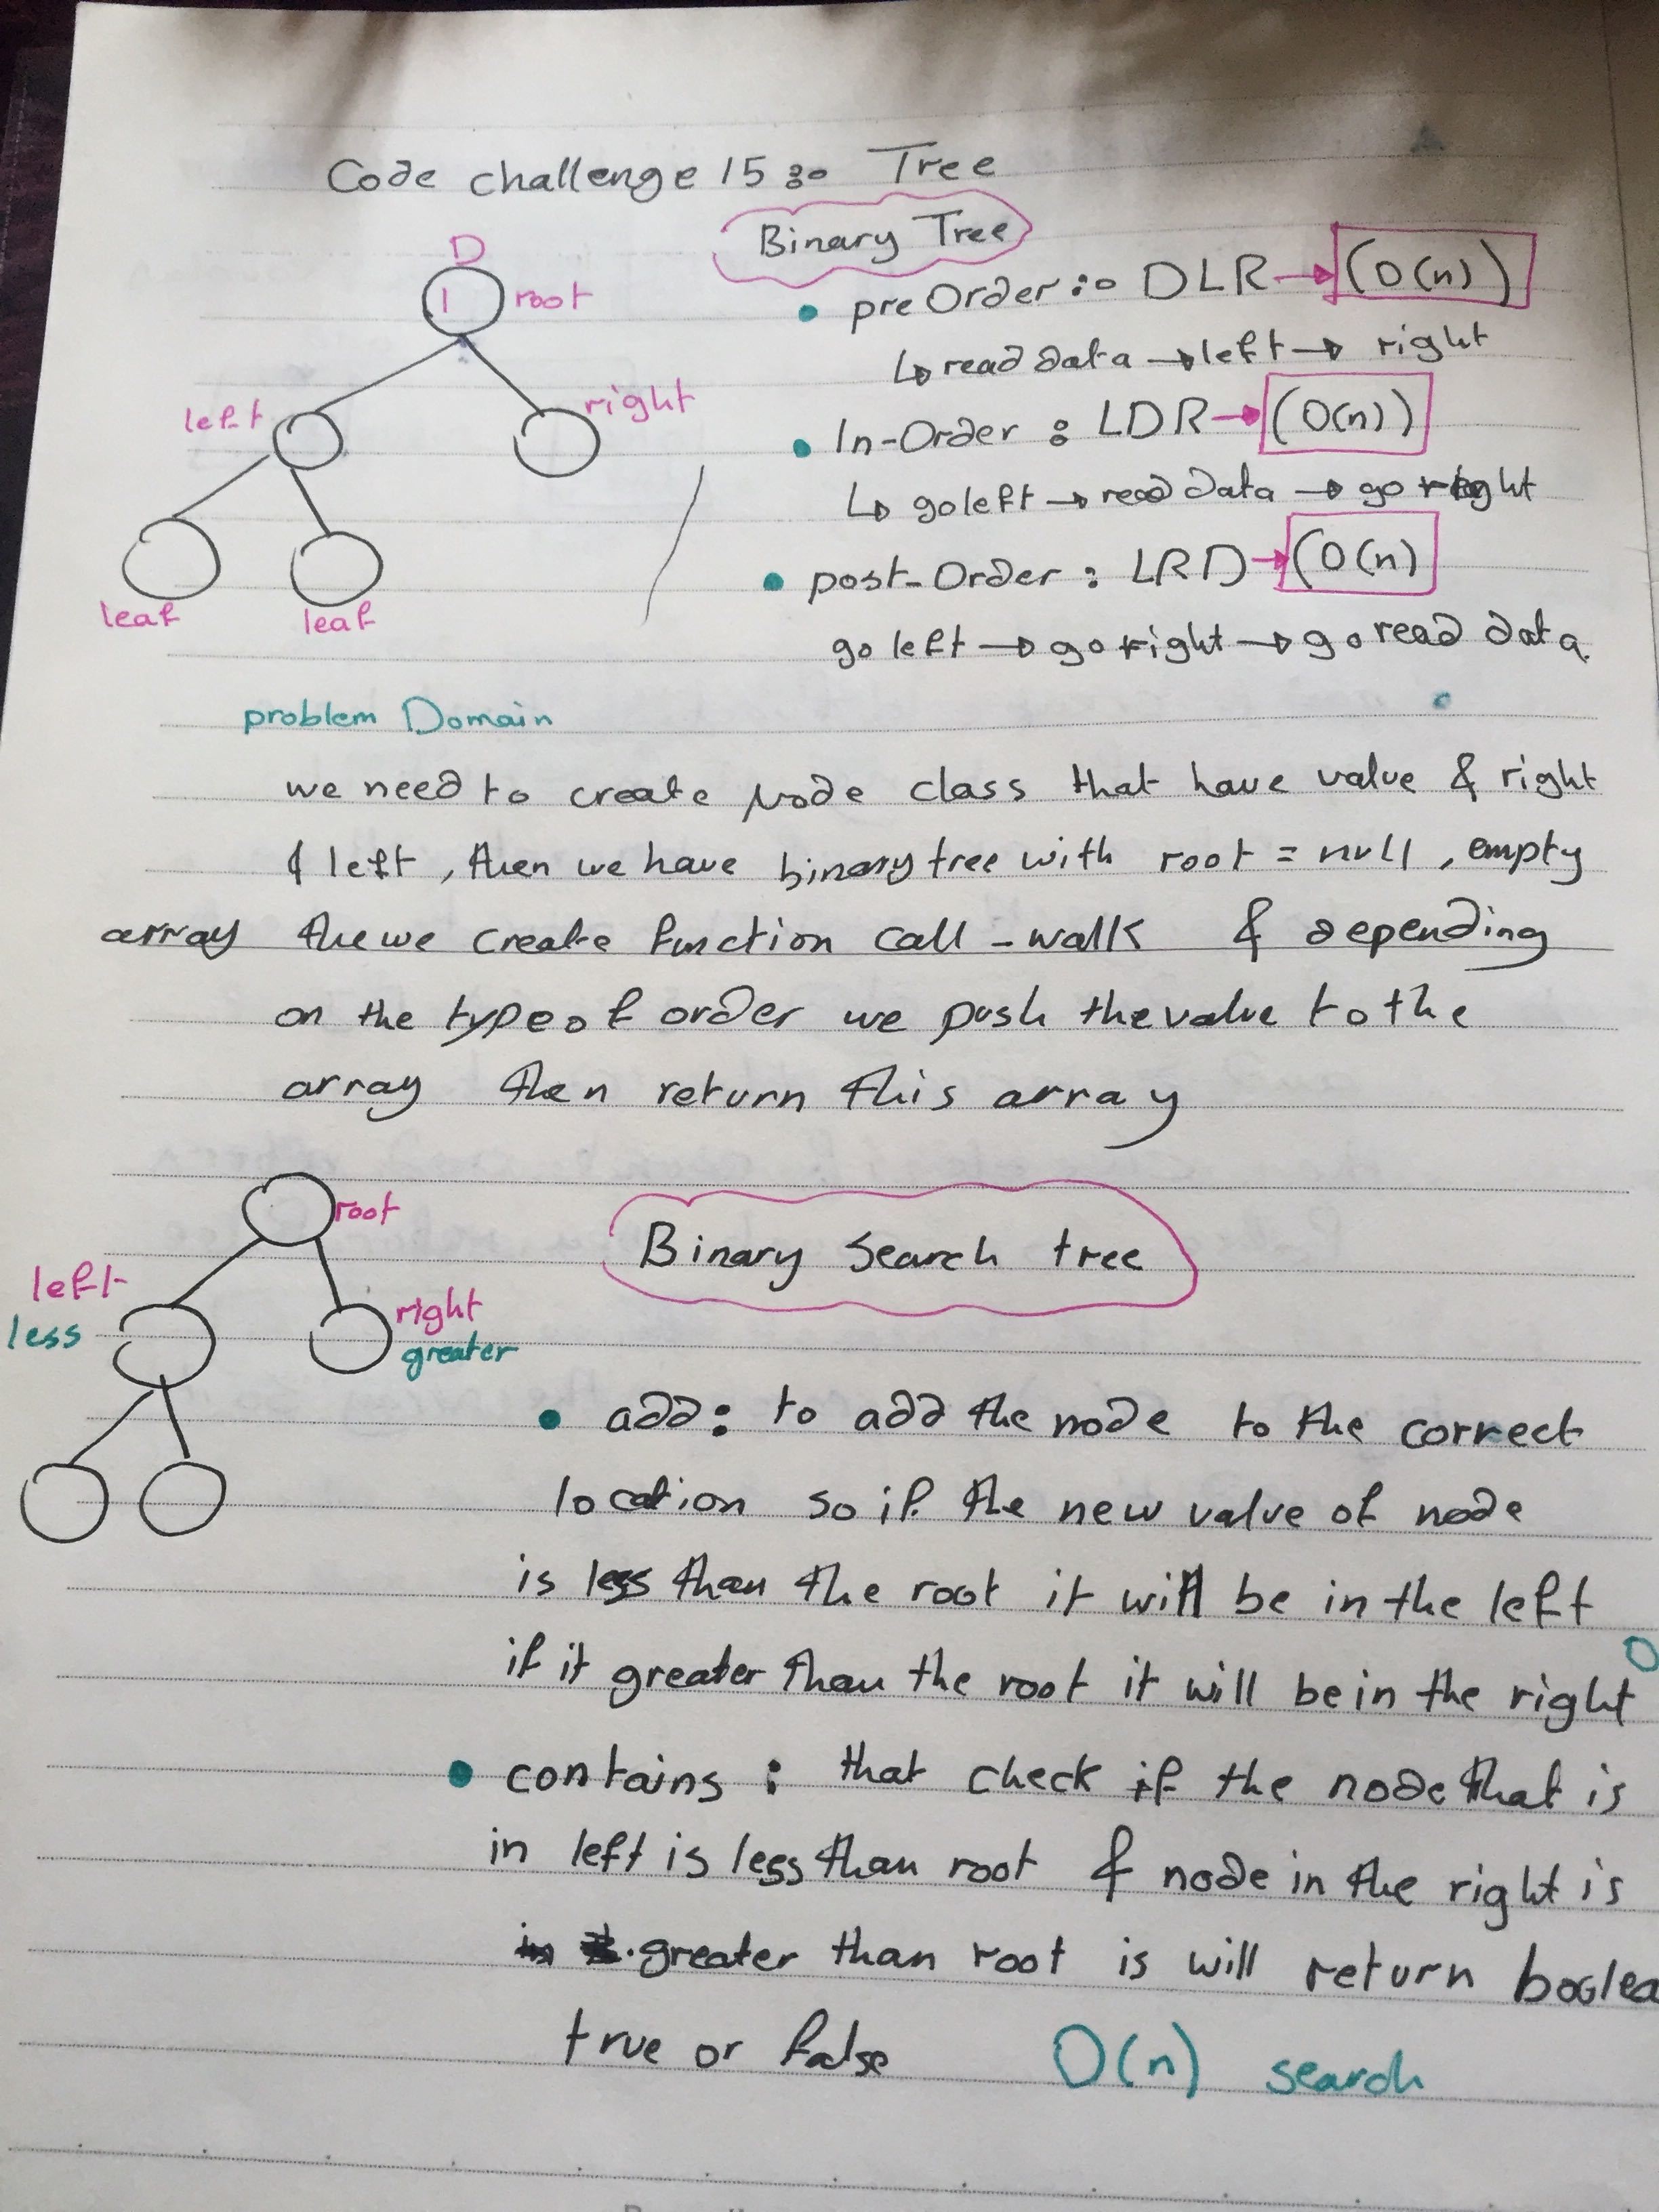 Code challenge 15:- Tree
Binary Tree
D
1 root
left
right
leaf
leaf
• preOrder :- DLR → (O(n))
↳ read data → left → right
• In-Order : LDR → (O(n))
↳ go left → read data → go right
• post-Order : LRD → (O(n)
go left → go right → go read data.
problem Domain
we need to create Node class that have value & right
& left, then we have binary tree with root = null, empty
array the we create function call _walk & depending
on the type of order we push the value to the
array then return this array
root
left
less
right
greater
Binary Search tree
• add: to add the node to the correct
location so if the new value of node
is less than the root it will be in the left
if it greater than the root it will be in the right
• contains : that check if the node that is
in left is less than root & node in the right is
greater than root is will return boolea
true or false O(n) search